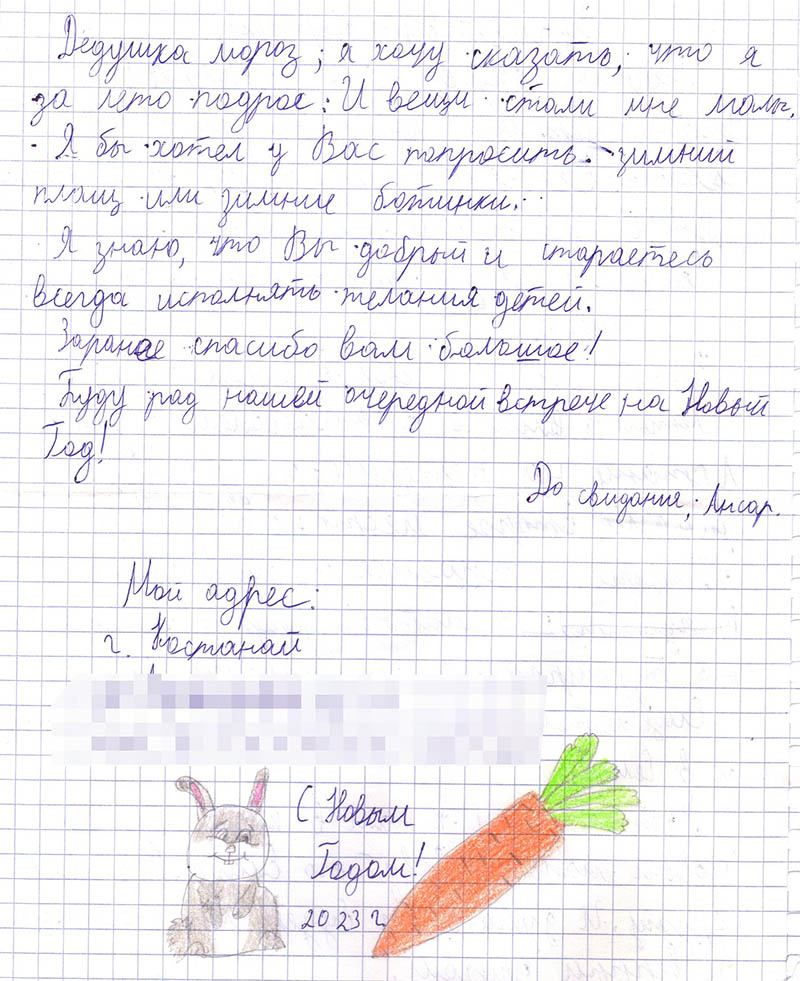 Дедушка мороз, я хочу сказать, что я
за лето подрос. И вещи стали мне малы.
Я бы хотел у Вас попросить зимний
плащ или зимние ботинки.
Я знаю, что Вы добрый и стараетесь
всегда исполнять желания детей.
Заранее спасибо вам большое!
Буду рад нашей очередной встрече на Новый
Год!
До свидания, Ансар.
Мой адрес:
г. Костанай
С Новым
Годом!
2023 г